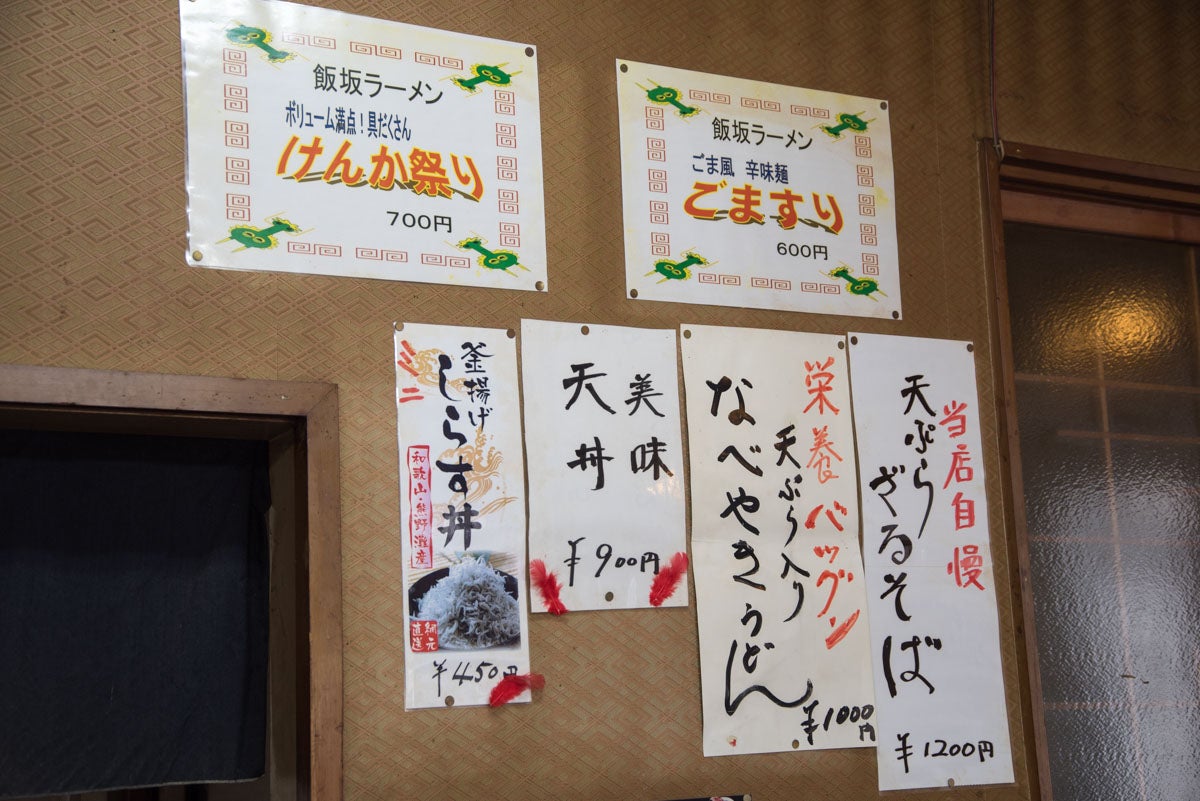 飯坂ラーメン
ボリューム満点！具だくさん
けんか祭り
700円
飯坂ラーメン
ごま風 辛味麺
ごますり
600円
ミニ
釜揚げ
しらす丼
和歌山・熊野灘産
網元
直送
¥450円
美味
天丼
¥900円
栄養バツグン
天ぷら入り
なべやきうどん
¥1000円
当店自慢
天ぷら
ざるそば
¥1200円